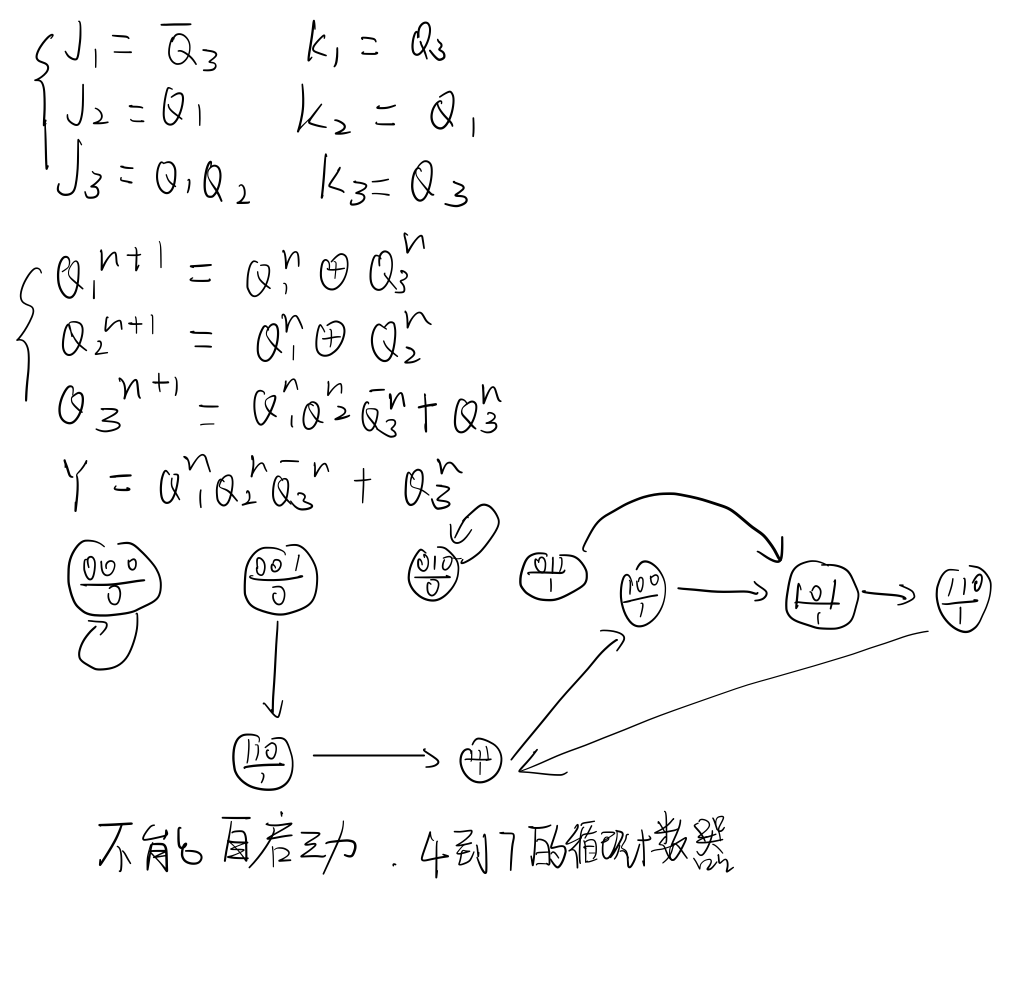 J₁ = Q̅₃ k₁ = Q₃
J₂ = Q₁ k₂ = Q₁
J₃ = Q₁Q₂ k₃ = Q₃
Q₁ⁿ⁺¹ = Q₁ⁿ ⊕ Q₃ⁿ
Q₂ⁿ⁺¹ = Q₁ⁿ ⊕ Q₂ⁿ
Q₃ⁿ⁺¹ = Q₁ⁿQ₂ⁿQ̅₃ⁿ + Q₃ⁿ
Y = Q₁ⁿQ₂ⁿQ̅₃ⁿ + Q₃ⁿ
000/0 001/0 010/0 011/1 100/1 101/1 110/1
110/1 111/1
不能自启动.4到7的循环计数器